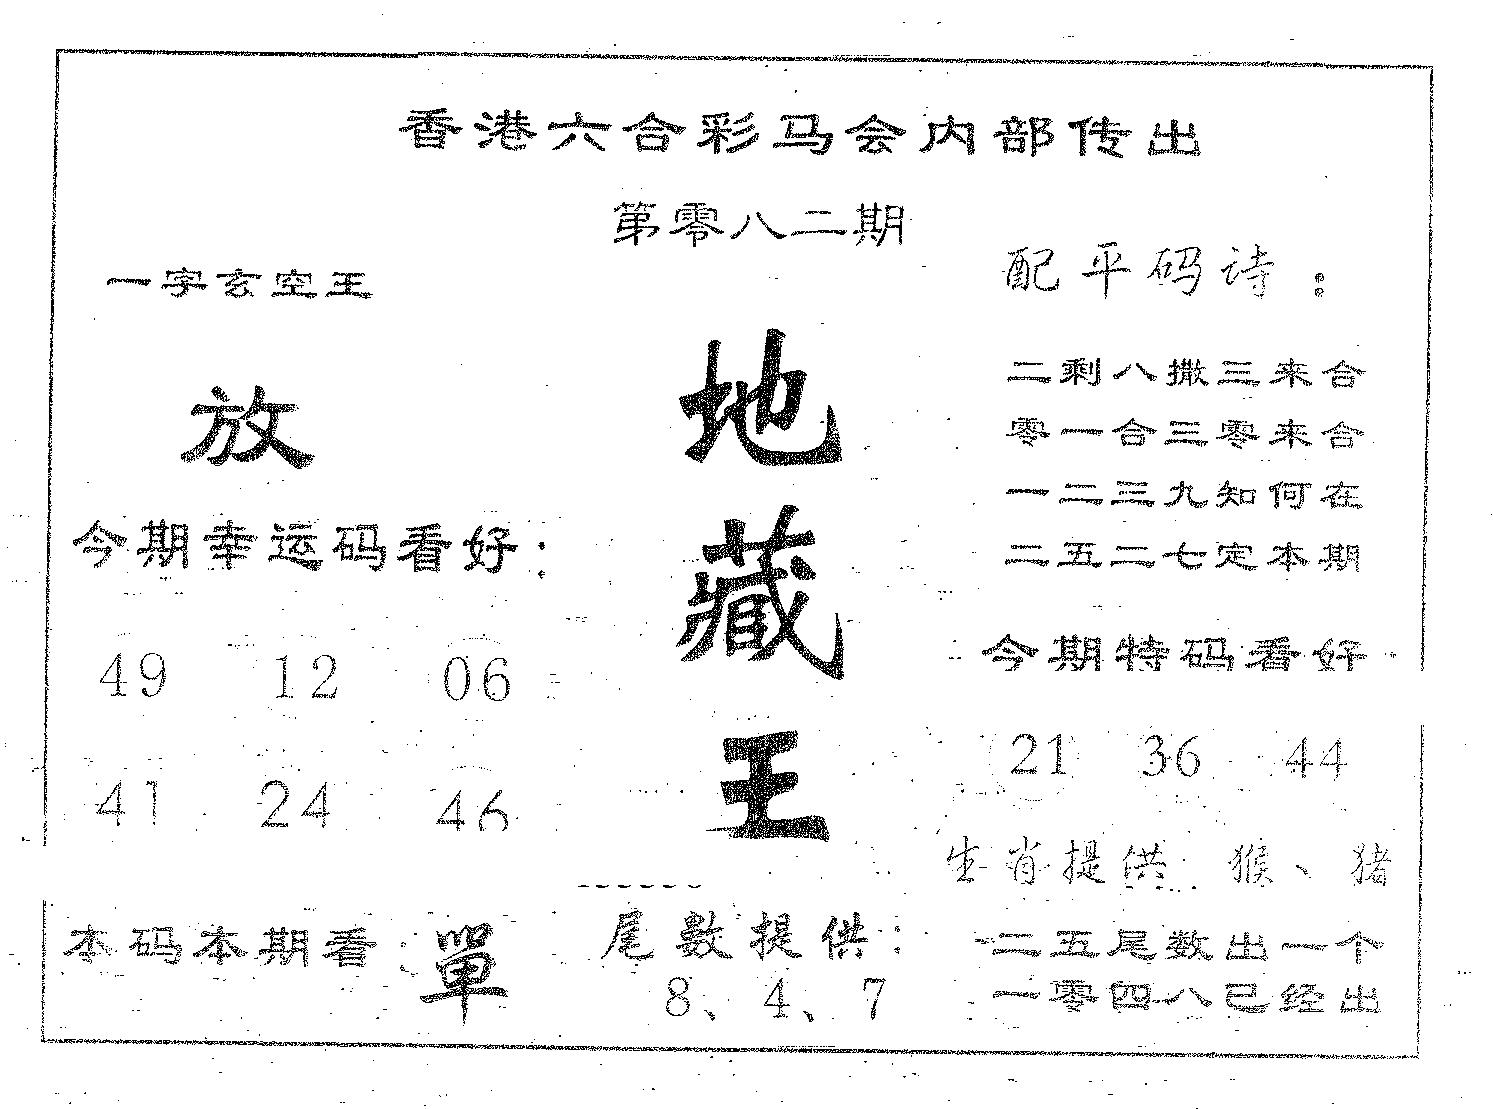 香港六合彩马会内部传出
第零八二期
一字玄空王
放
今期幸运码看好：
49 12 06
41 24 46
本码本期看：單
地
藏
王
尾數提供：
8、4、7
配平码诗：
二剩八撒三来合
零一合三零来合
一二三九知何在
二五二七定本期
今期特码看好
21 36 44
生肖提供 猴、猪
二五尾数出一个
一零四八已经出